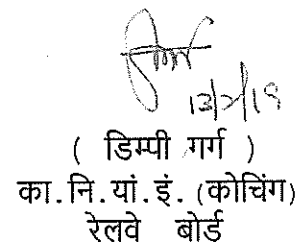 13/2/19
( डिम्पी गर्ग )
का.नि.यां.इं.(कोचिंग)
रेलवे बोर्ड